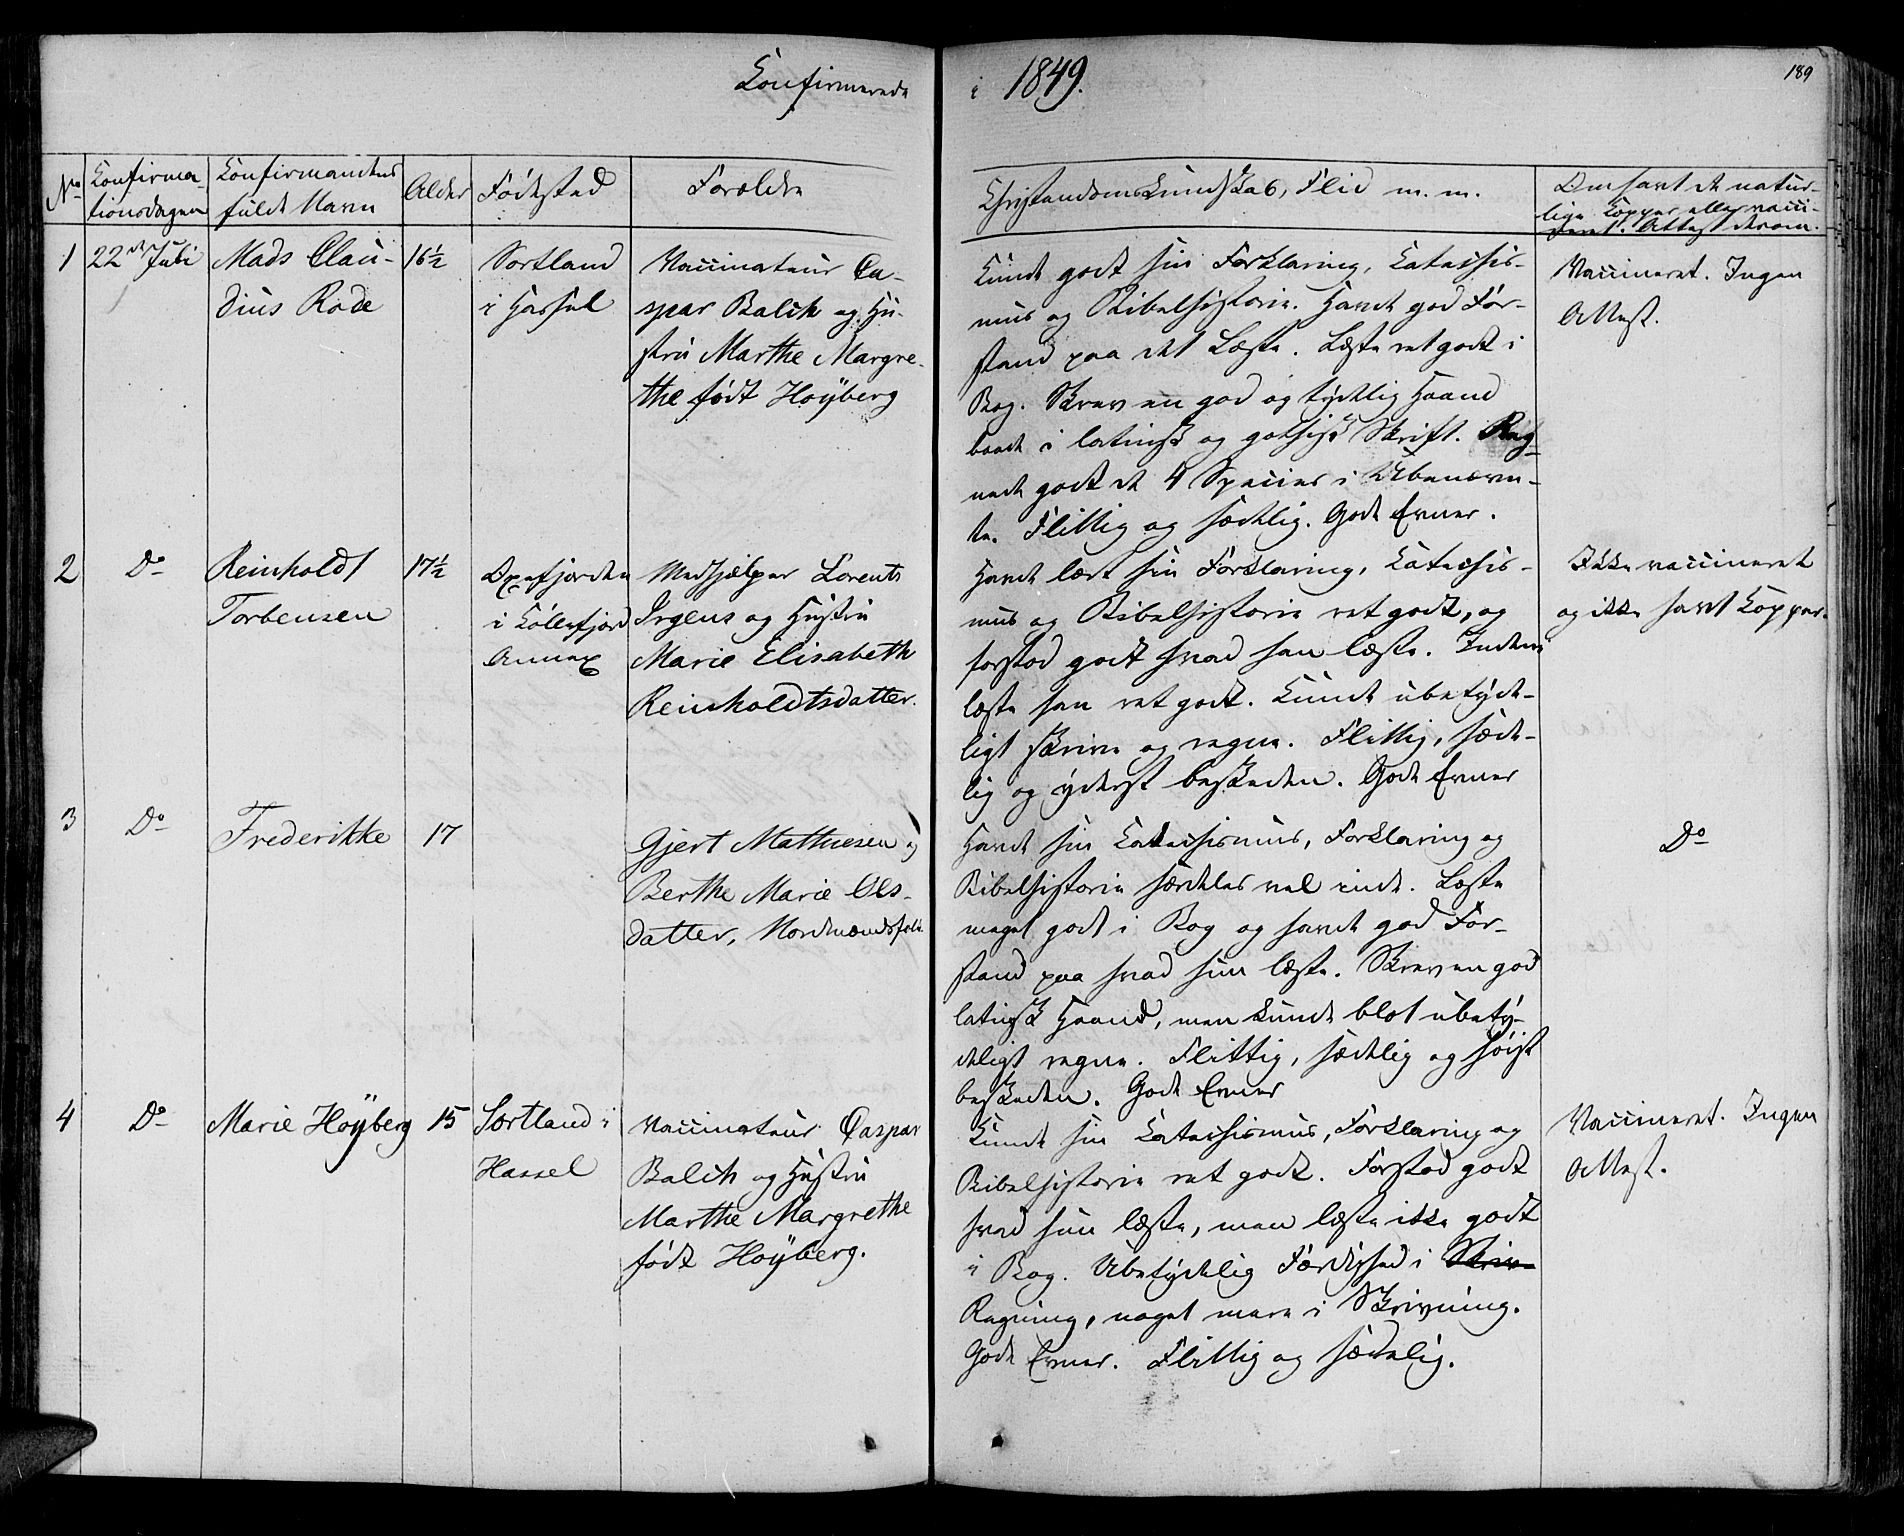 Confirmerede
i 1849.
189
No
Confirma-
tionsdagen
Confirmandens
fulde Navn
Alder
Födested
Forældre
Christendomskundskab, Flid m. m.
Om havt de natur-
lige Kopper eller vacci-
neret. Attest derom.
1
22de Juli
Mads Clau-
dius Rode
16½
Sortland
i Hassel
Vaccinateur Ca-
spar Balch og Hu-
stru Marthe Margre-
the födt Hoÿberg
Kunde godt sin Forklaring, Catechis-
mus og Bibelhistorie. Havde god For-
stand paa det Læste. Læste ret godt i
Bog. Skrev en god og tydelig Haand
baade i latinsk og gothisk Skrift. Reg-
nede godt de 4 Species i Ubenævn-
te. Flittig og sædelig. Gode Evner.
Vaccineret. Ingen
Attest.
2
Do
Reinholdt
Torbensen
17½
Oxefjorden
i Kollefjord
Annex
Medhjælper Lorents
Irgens og Hustru
Marie Elisabeth
Reinholdtsdatter.
Havde lært sin Forklaring, Catechis-
mus og Bibelhistorie ret godt, og
forstod godt hvad han læste. Indeni
læste han ret godt. Kunde ubetyde-
ligt skrive og regne. Flittig, sæde-
lig og yderst beskeden. Gode Evner
Ikke vaccineret
og ikke havt Kopper.
3
Do
Frederikke
17
Gjert Mathiesen og
Berthe Marie Ols-
datter, Nordmændsfolk
Havde sin Catechismus, Forklaring og
Bibelhistorie særdeles vel inde. Læste
meget godt i Bog og havde god For-
stand paa hvad hun læste. Skrev en god
latinsk Haand, men kunde blot ubety-
deligt regne. Flittig, sædelig og höist
beskeden. Gode Evner
Do
4
Do
Marie Hoÿberg
15
Sortland i
Hassel
Vaccinateur Caspar
Balch og Hustru
Marthe Margrethe
födt Hoÿberg.
Kunde sin Catechismus, Forklaring og
Bibelhistorie ret godt. Forstod godt
hvad hun læste, men læste ikke godt
i Bog. Ubetydelig Færdighed i Skriv-
Regning, noget mere i Skrivning.
Gode Evner. Flittig og sædelig.
Vaccineret. Ingen
Attest.